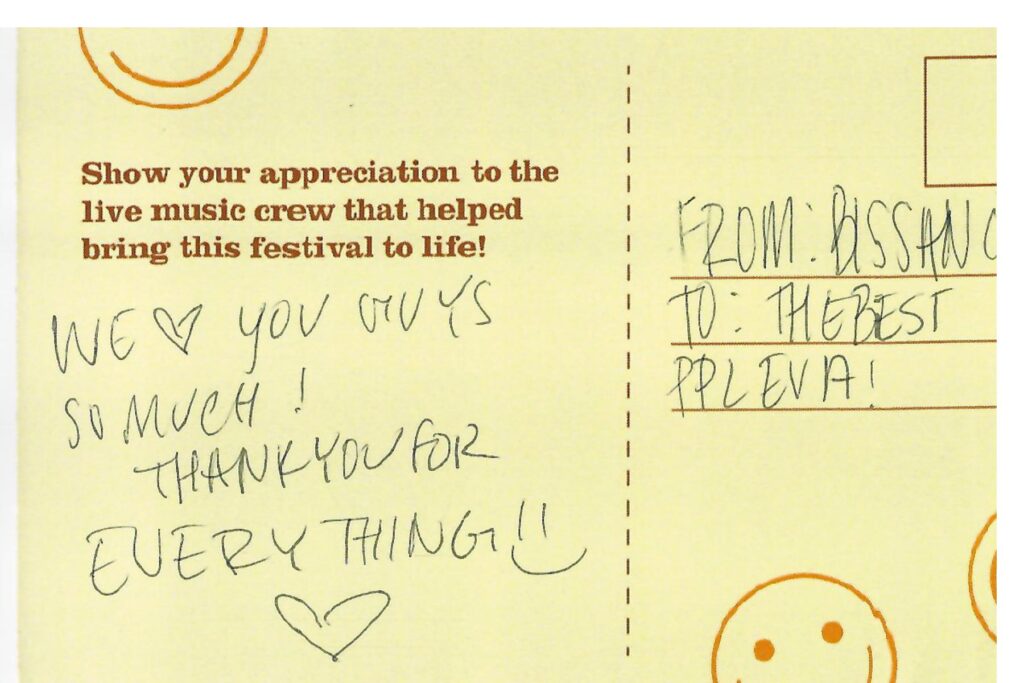 Show your appreciation to the
live music crew that helped
bring this festival to life!
WE ♡ YOU GUYS
SO MUCH !
THANK YOU FOR
EVERYTHING!!
FROM: BISSANC
TO: THE BEST
PPL EVA!